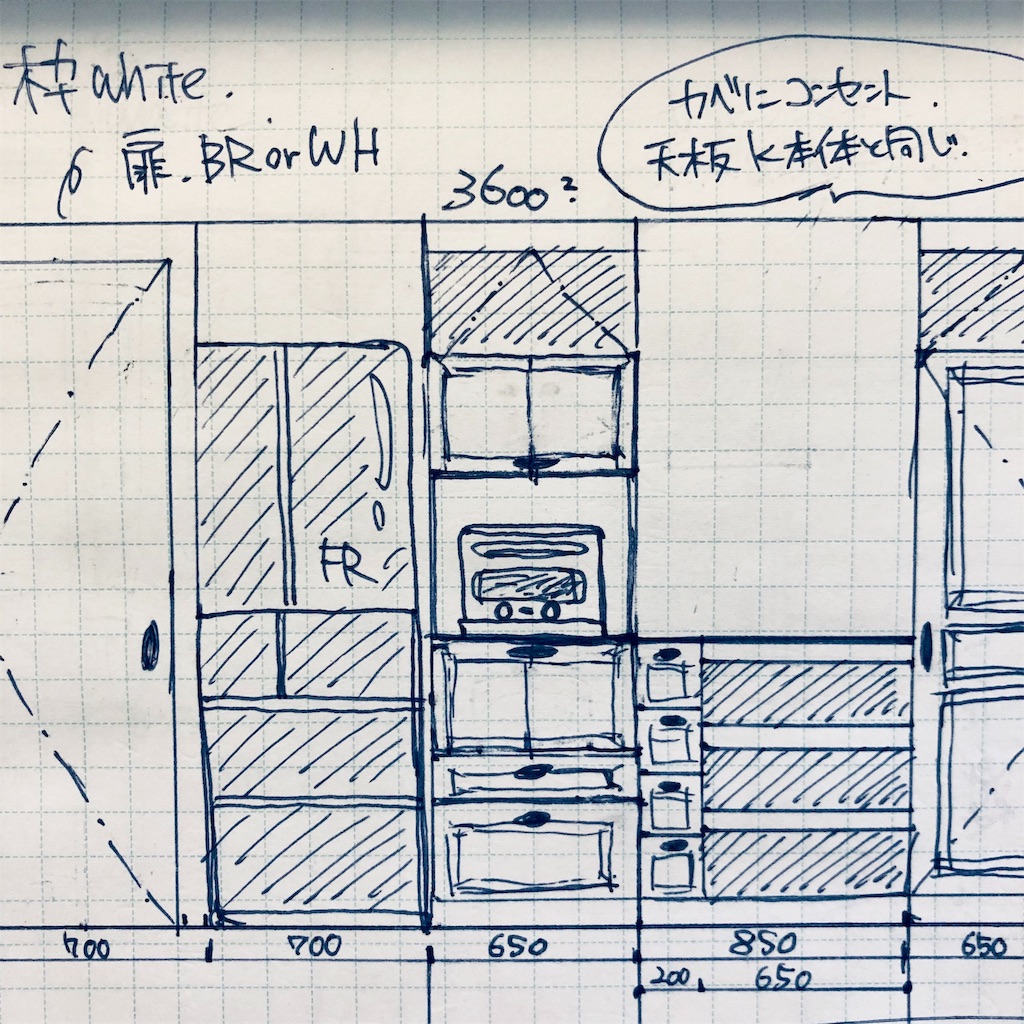 枠 white.
扉. BR or WH
カベにコンセント.
天板 K本体と同じ.
3600?
FR
700 700 650 850 650
200 650